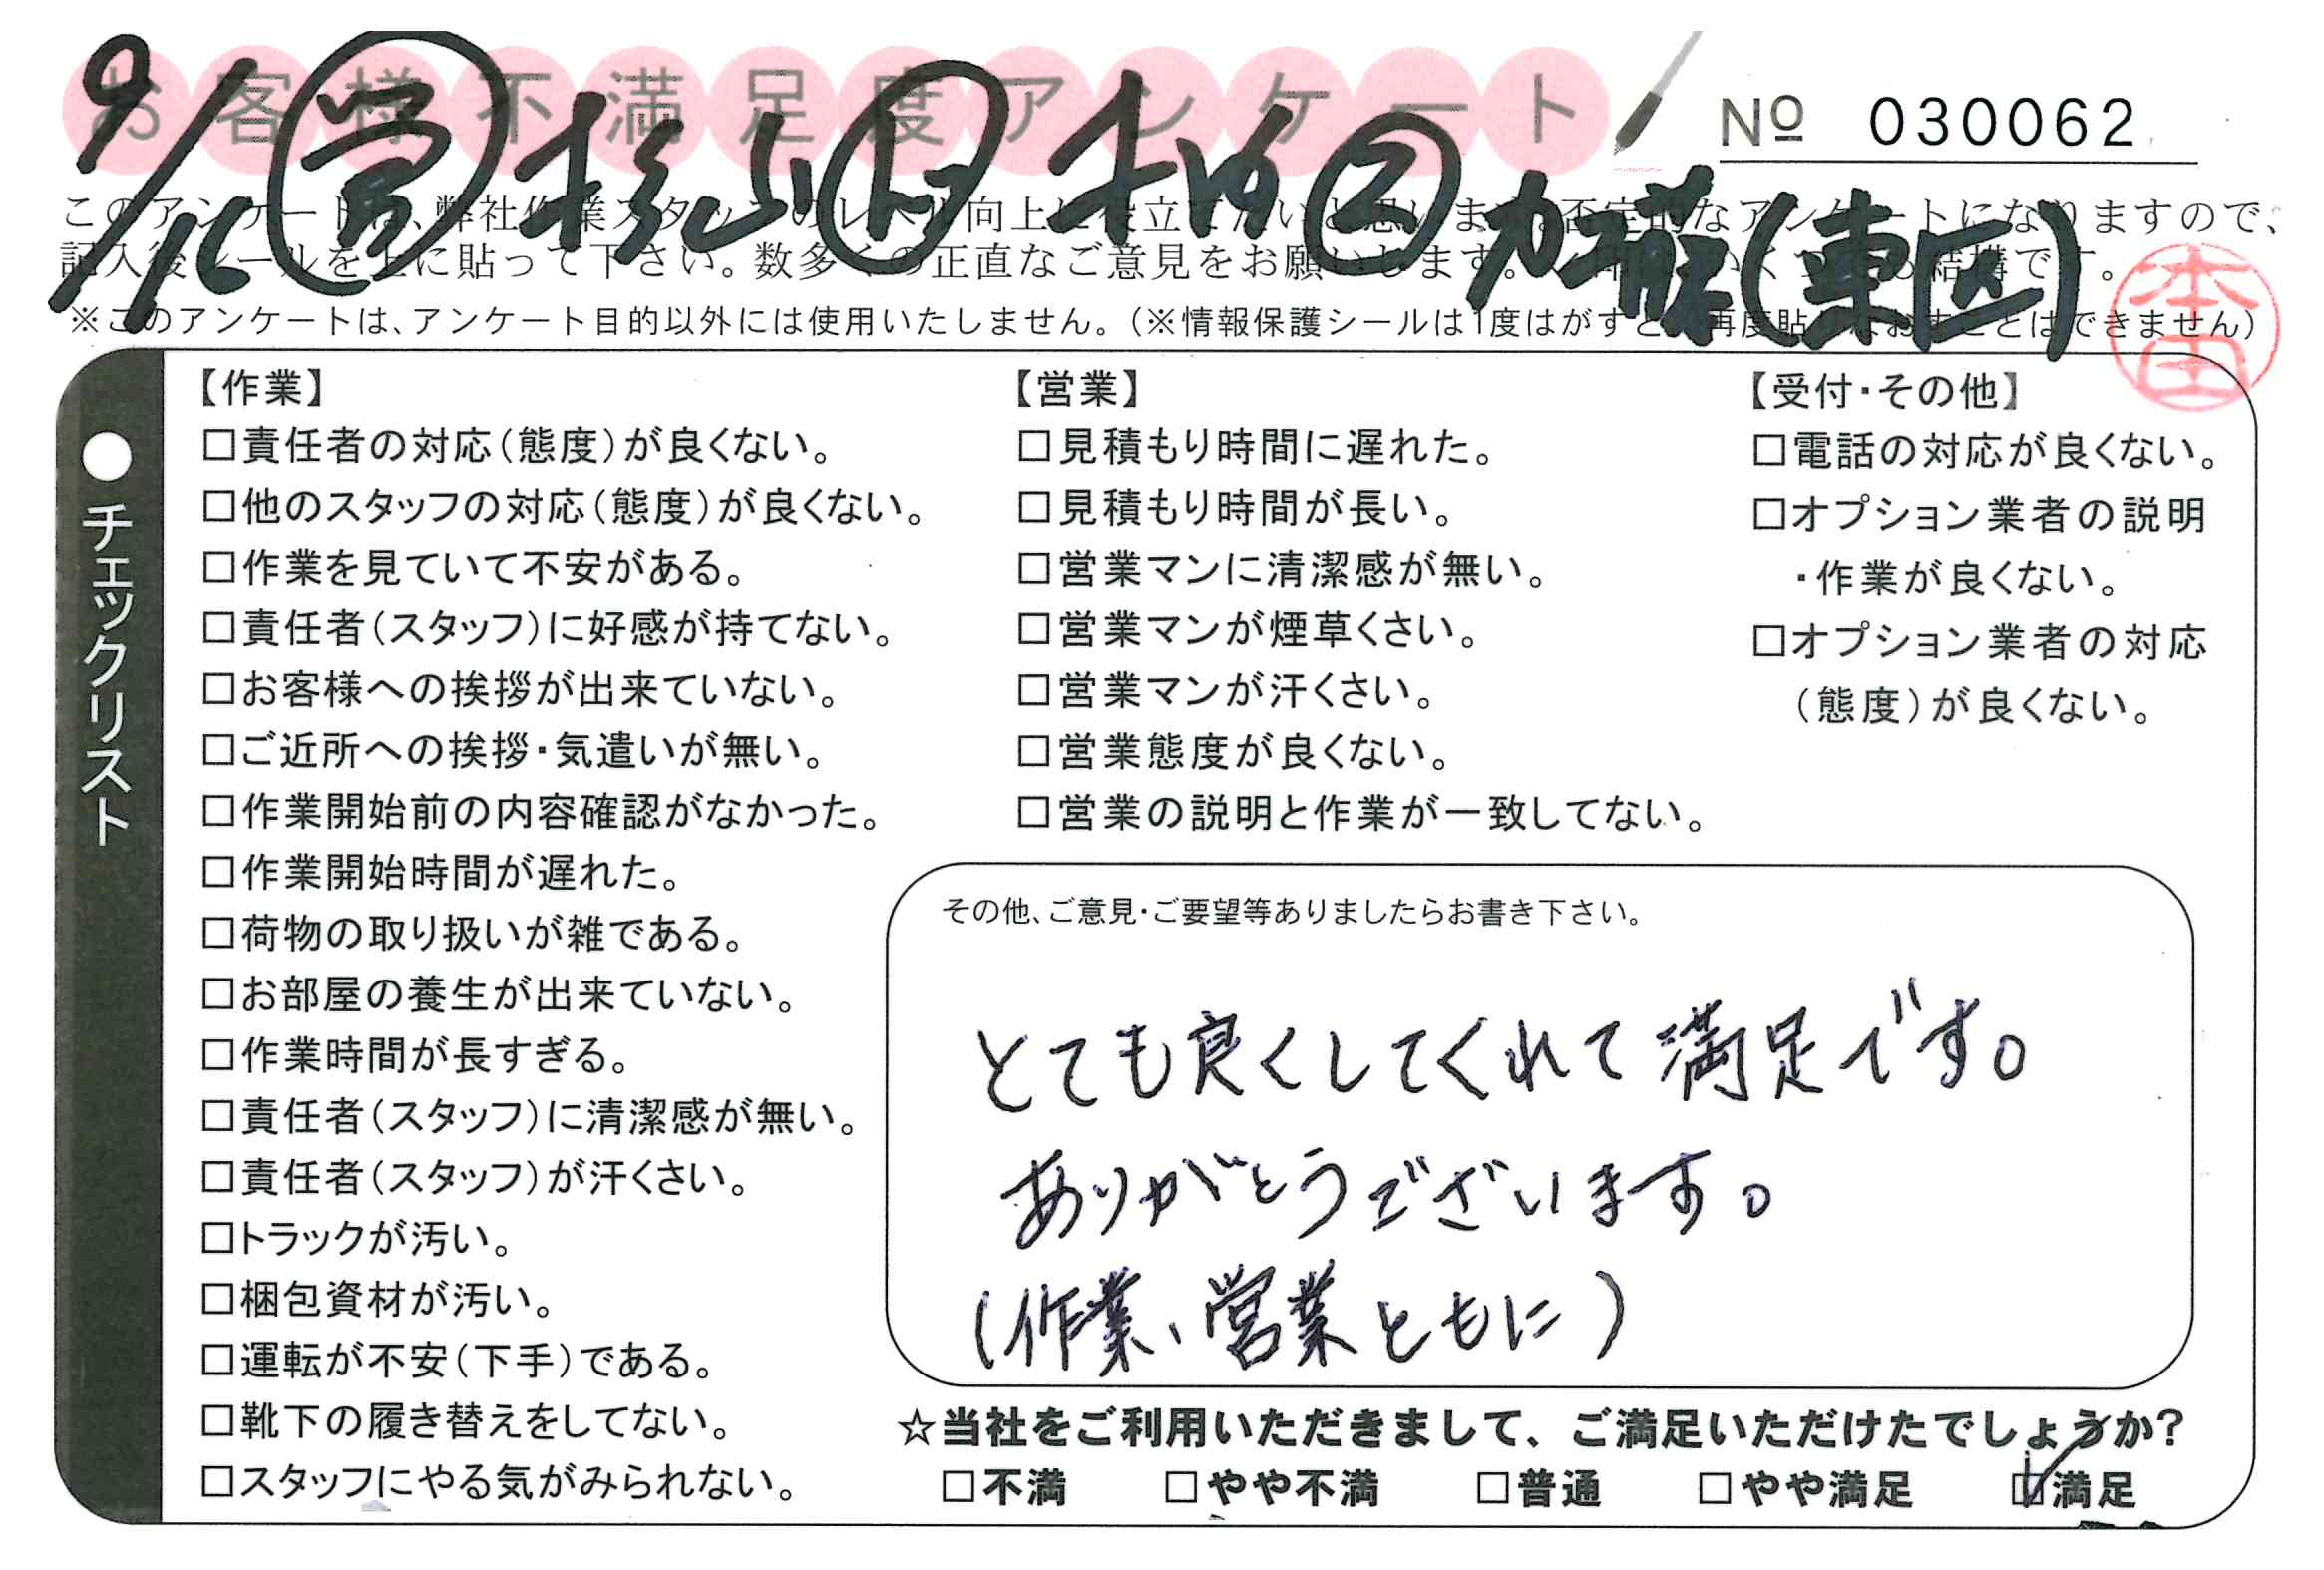 お客様不満足度アンケート
№ 030062
9/16 ㊢杉山 ト 2 加藤(東区)
このアンケートは、弊社作業スタッフのレベル向上に役立てたいと思います。否定的なアンケートになりますので、
記入後シールを上に貼って下さい。数多くの正直なご意見をお願いします。 結構です。
※このアンケートは、アンケート目的以外には使用いたしません。(※情報保護シールは1度はがすと、再度貼りなおすことはできません)
本田
●チェックリスト
【作業】
□責任者の対応(態度)が良くない。
□他のスタッフの対応(態度)が良くない。
□作業を見ていて不安がある。
□責任者(スタッフ)に好感が持てない。
□お客様への挨拶が出来ていない。
□ご近所への挨拶・気遣いが無い。
□作業開始前の内容確認がなかった。
□作業開始時間が遅れた。
□荷物の取り扱いが雑である。
□お部屋の養生が出来ていない。
□作業時間が長すぎる。
□責任者(スタッフ)に清潔感が無い。
□責任者(スタッフ)が汗くさい。
□トラックが汚い。
□梱包資材が汚い。
□運転が不安(下手)である。
□靴下の履き替えをしてない。
□スタッフにやる気がみられない。
【営業】
□見積もり時間に遅れた。
□見積もり時間が長い。
□営業マンに清潔感が無い。
□営業マンが煙草くさい。
□営業マンが汗くさい。
□営業態度が良くない。
□営業の説明と作業が一致してない。
【受付・その他】
□電話の対応が良くない。
□オプション業者の説明
・作業が良くない。
□オプション業者の対応
(態度)が良くない。
その他、ご意見・ご要望等ありましたらお書き下さい。
とても良くしてくれて満足です。
ありがとうございます。
(作業、営業ともに)
☆当社をご利用いただきまして、ご満足いただけたでしょうか?
□不満 □やや不満 □普通 □やや満足 ☑満足